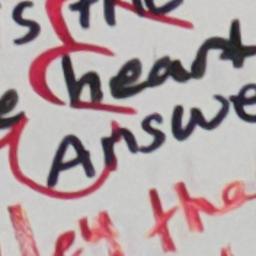 s the
heart
Answe
ley tha